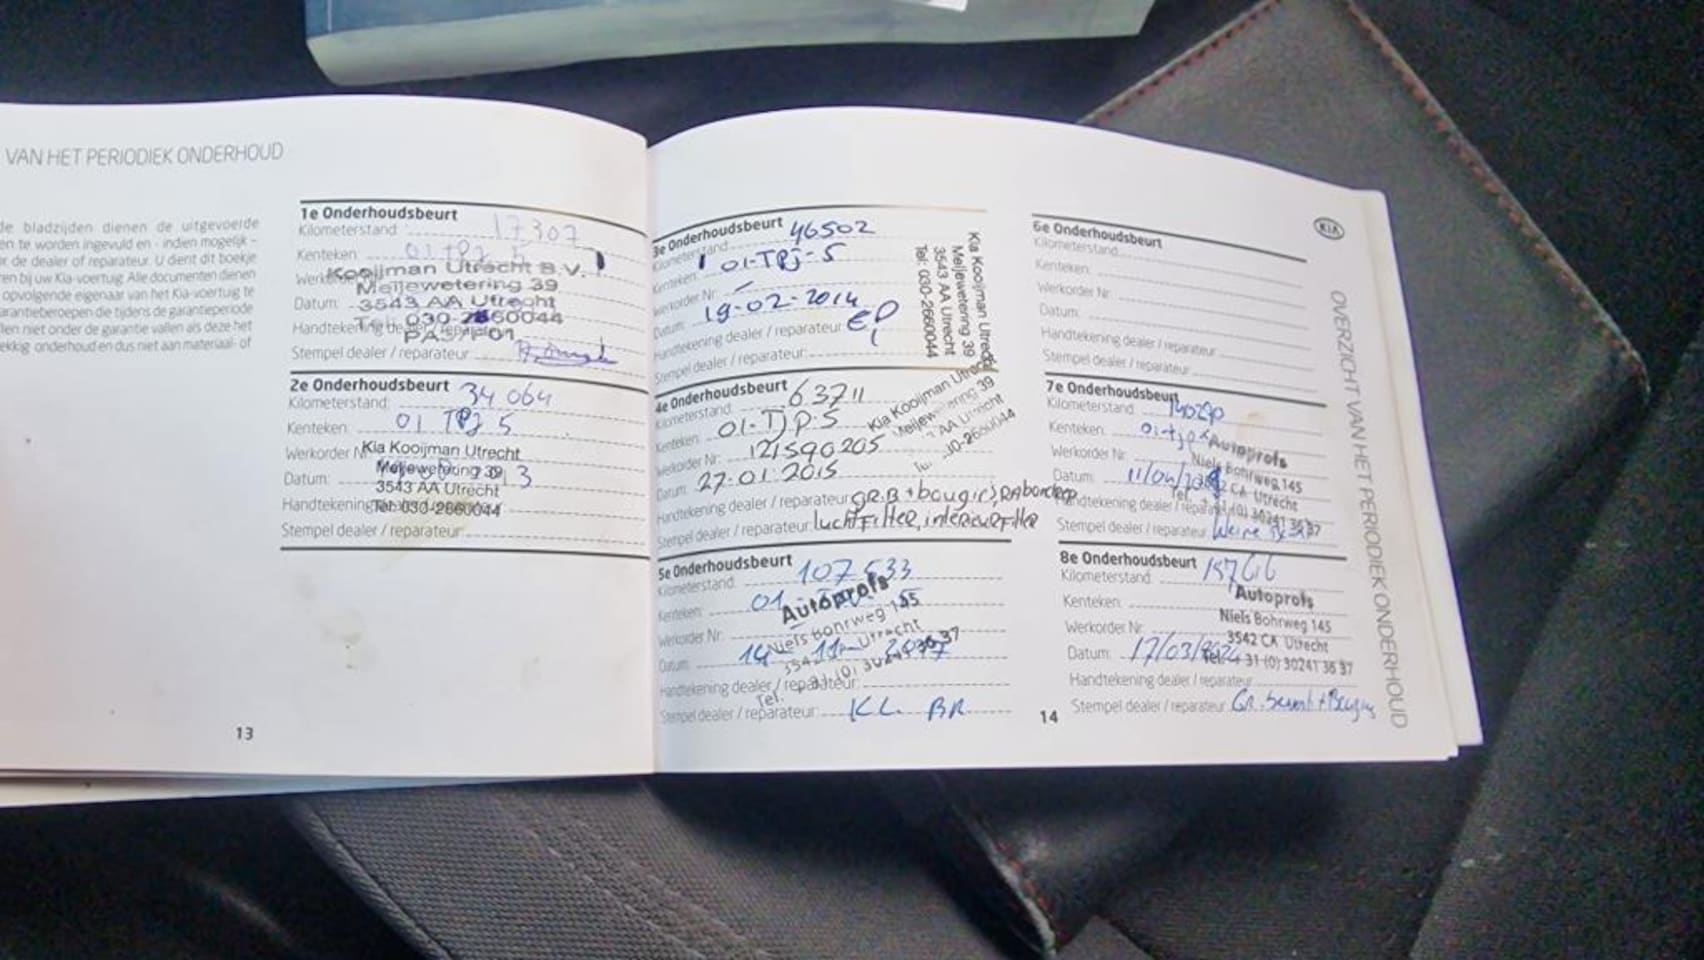 VAN HET PERIODIEK ONDERHOUD
de bladzijden dienen de uitgevoerde
en te worden ingevuld en - indien mogelijk -
r de dealer of reparateur. U dient dit boekje
ren bij uw Kia-voertuig. Alle documenten dienen
opvolgende eigenaar van het Kia-voertuig te
arantieberoepen die tijdens de garantieperiode
llen niet onder de garantie vallen als deze het
ekkig onderhoud en dus niet aan materiaal- of
1e Onderhoudsbeurt
Kilometerstand 17307
Kenteken:
Kooijman Utrecht B.V.
Meijewetering 39
Datum: 3543 AA Utrecht
Tel: 030-2660044
Handtekening dealer / reparateur
Stempel dealer / reparateur
2e Onderhoudsbeurt
Kilometerstand: 34 064
Kenteken: 01 TPJ 5
Werkorder Nr Kia Kooijman Utrecht
Meijewetering 39
Datum:
3543 AA Utrecht
Handtekening Tel: 030-2660044
Stempel dealer / reparateur:
13
3e Onderhoudsbeurt
Kilometerstand: 46502
Kenteken: 01-TPJ-5
Werkorder Nr:
Datum: 19-02-2014
Handtekening dealer / reparateur
Stempel dealer / reparateur:
Kia Kooijman Utrecht
Meijewetering 39
3543 AA Utrecht
Tel: 030-2660044
4e Onderhoudsbeurt
Kilometerstand: 63711
Kenteken: 01-TJP-5
Werkorder Nr: 121590205
Datum: 27-01-2015
Handtekening dealer / reparateur: GR.B + bougie's,
Stempel dealer / reparateur: luchtFilter, interieurFilter
Kia Kooijman Utrecht
Meijewetering 39
AA Utrecht
5e Onderhoudsbeurt
Kilometerstand: 107 633
Kenteken: 01
Autoprofs
Werkorder Nr: Niels Bohrweg 145
Utrecht
Datum: 14-11-2017
Handtekening dealer / reparateur:
Tel.
Stempel dealer / reparateur: KL BR
6e Onderhoudsbeurt
Kilometerstand:
Kenteken:
Werkorder Nr:
Datum:
Handtekening dealer / reparateur:
Stempel dealer / reparateur:
7e Onderhoudsbeurt
Kilometerstand:
Kenteken:
Autoprofs
Werkorder Nr: Niels Bohrweg 145
CA Utrecht
Datum:
Handtekening dealer / reparateur
Stempel dealer / reparateur:
8e Onderhoudsbeurt
Kilometerstand:
Autoprofs
Kenteken:
Niels Bohrweg 145
Werkorder Nr:
3542 CA Utrecht
Datum: 17/03/
Tel. + 31 (0) 30241 36 37
Handtekening dealer / reparateur
Stempel dealer / reparateur: GR.
14
KIA
OVERZICHT VAN HET PERIODIEK ONDERHOUD